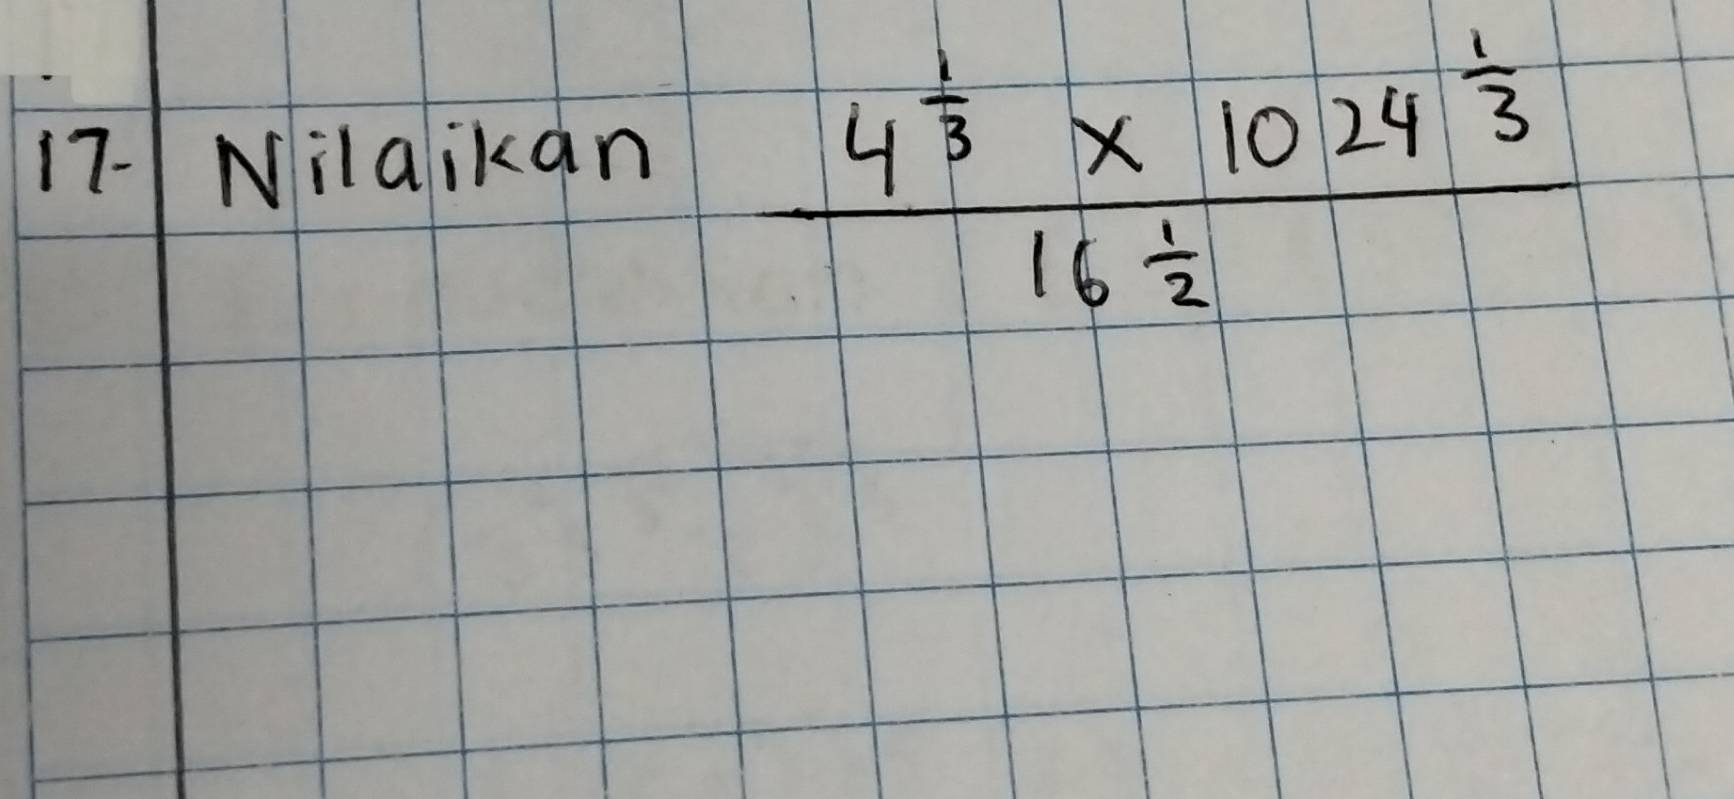 17. Nilaikan 4^(1/3) x 1024^(1/3) / 16^(1/2)